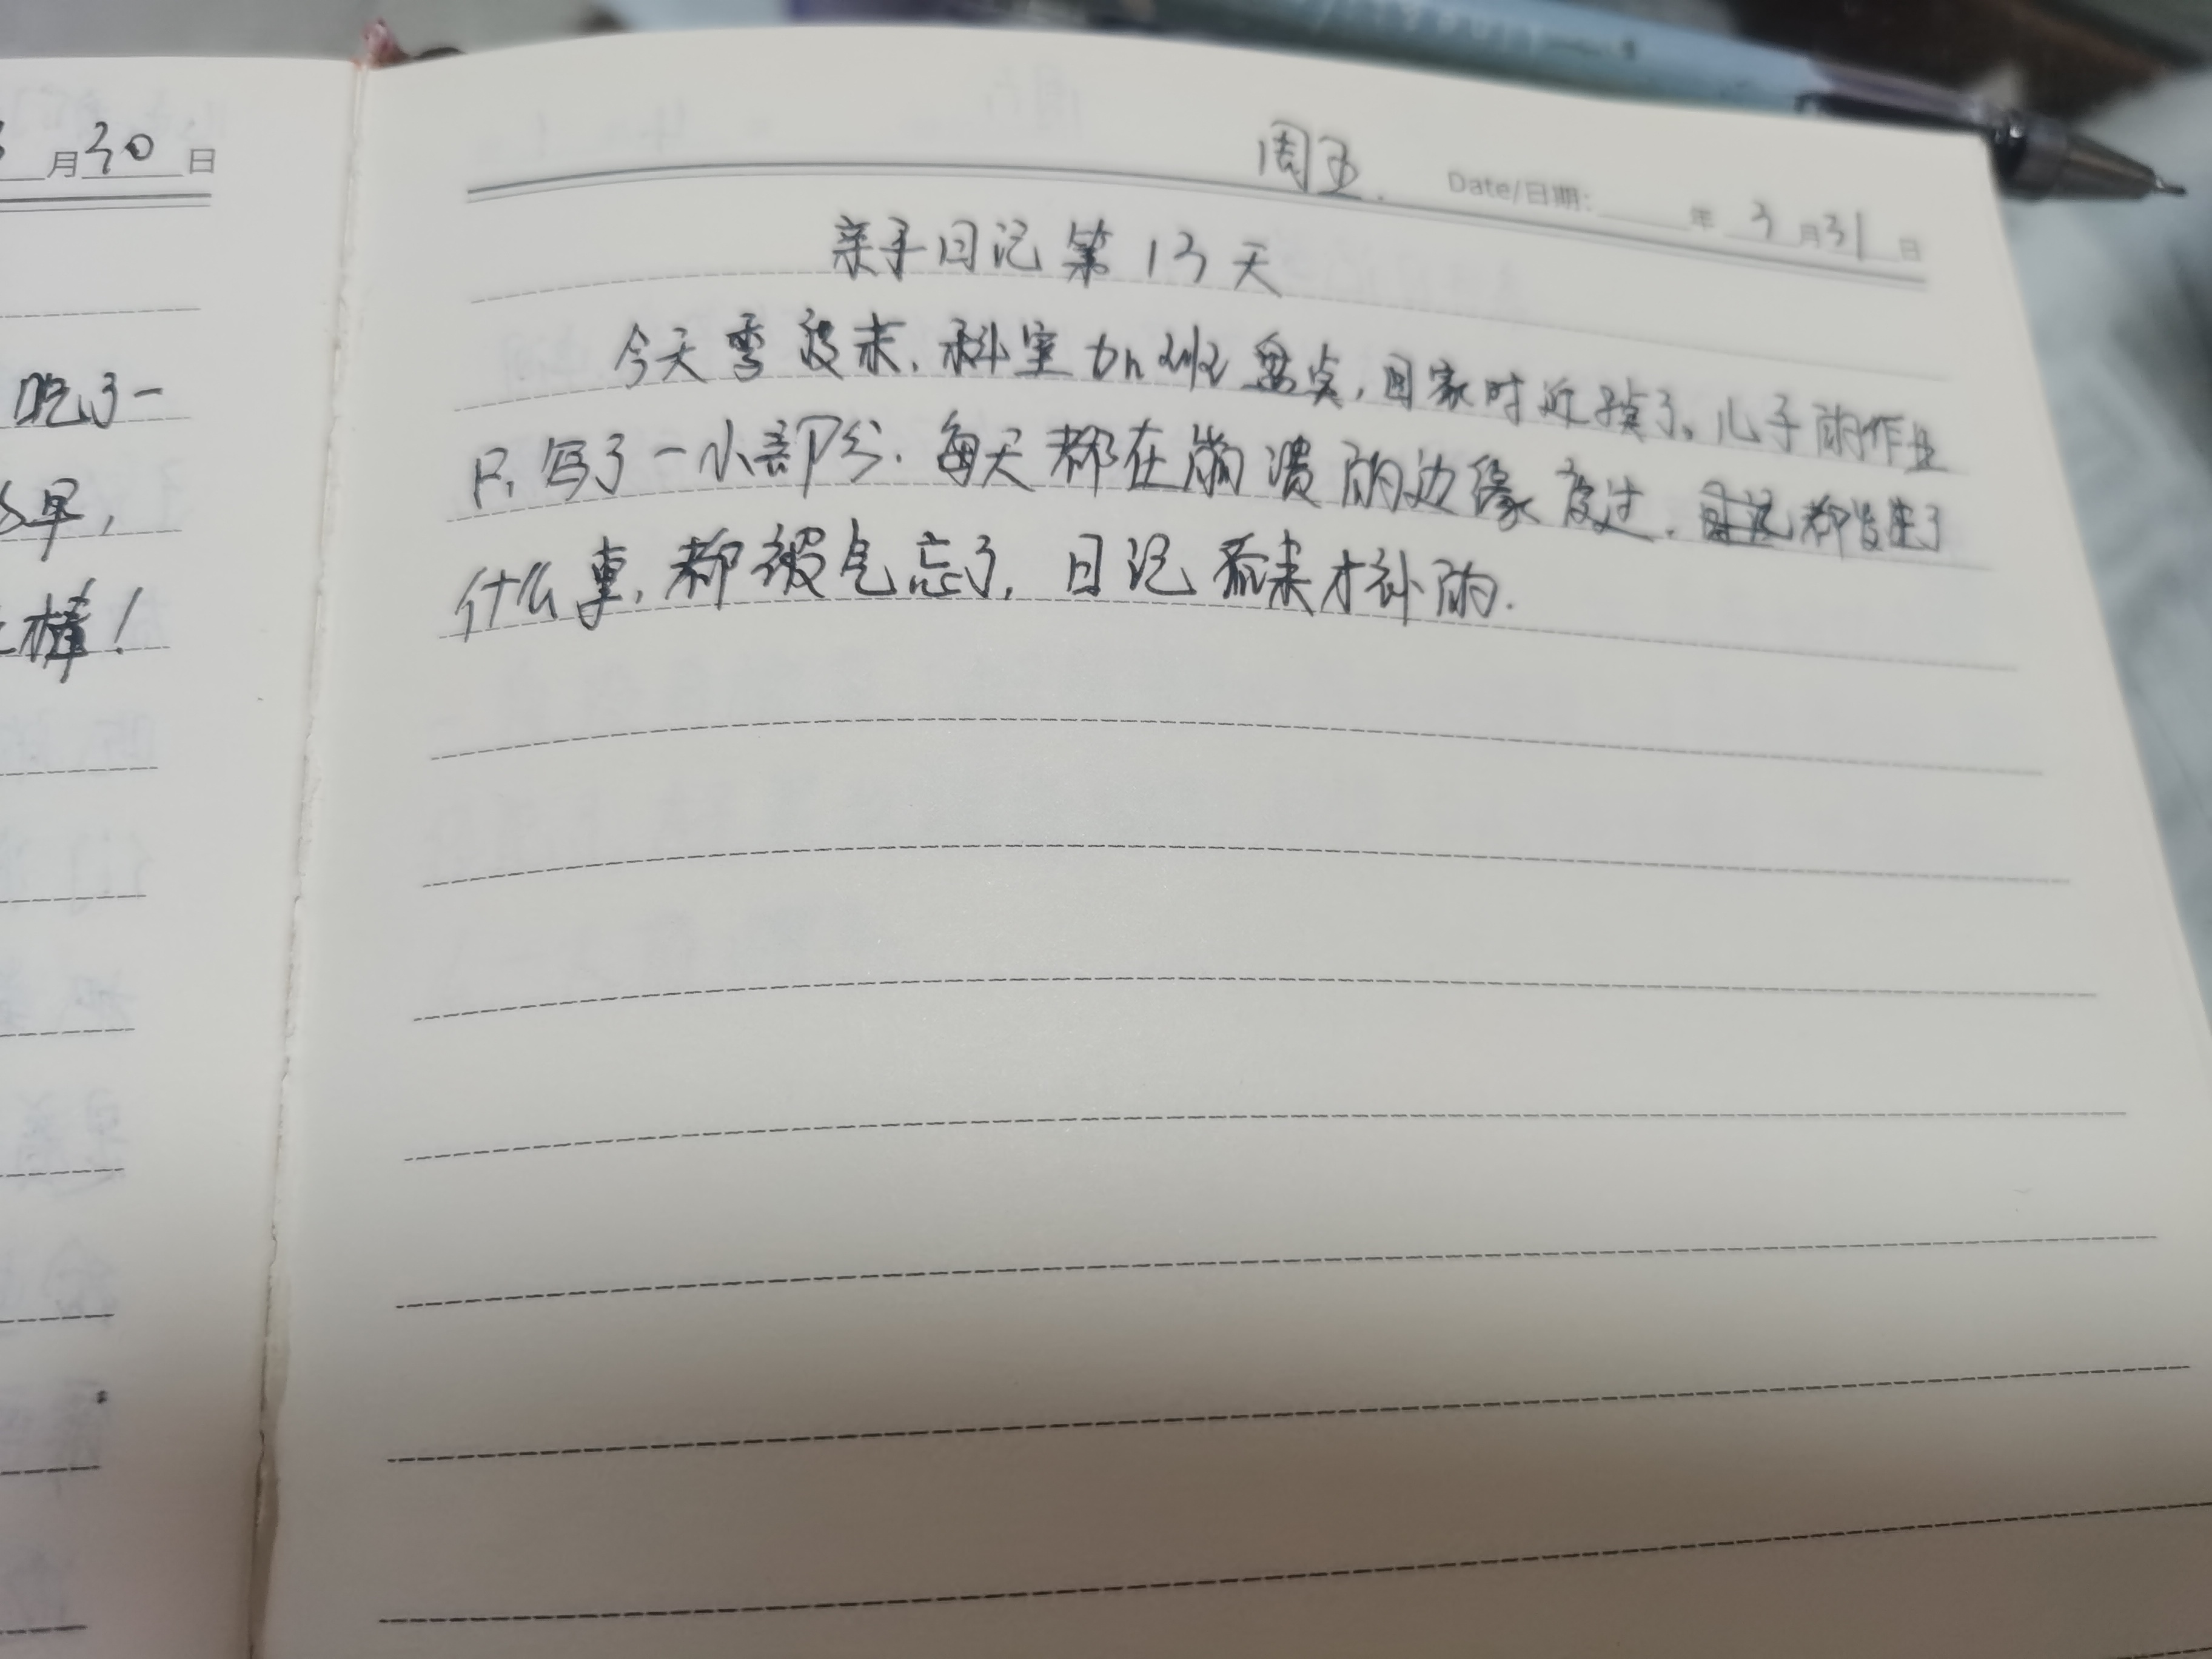 3月30日
吃了一
么早，
棒！
周五. Date/日期: 年 3月31日
亲子日记第13天
今天季度末，科室加班盘点，回家时近疯了。儿子的作业
只写了一小部分. 每天都在崩溃的边缘度过. 都发生了
什么事，都被气忘了，日记后来才补的.